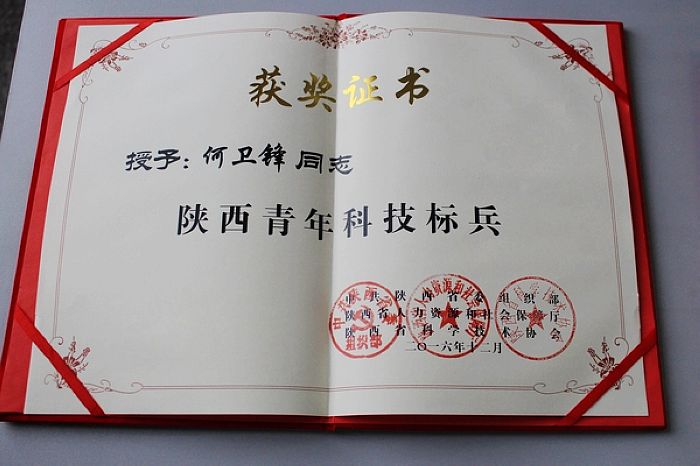 获奖证书
授予：何卫锋同志
陕西青年科技标兵
中共陕西省委组织部
陕西省人力资源和社会保障厅
陕西省科学技术协会
二〇一六年十二月
组织部